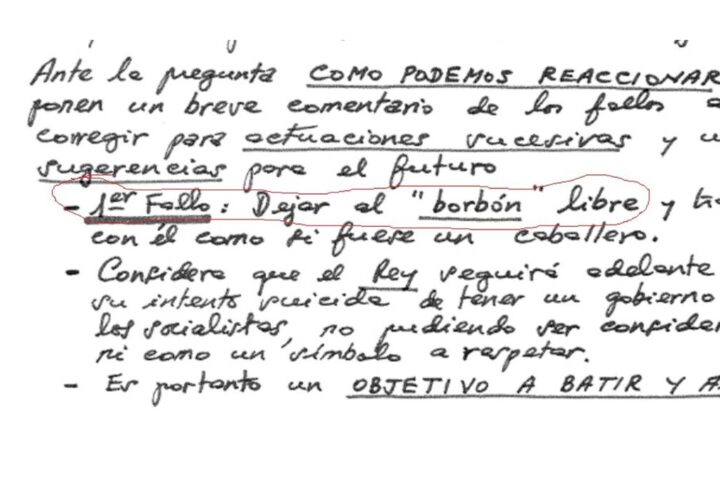 Ante la pregunta COMO PODEMOS REACCIONAR
ponen un breve comentario de los fallos a
corregir para actuaciones sucesivas y u
sugerencias para el futuro
- 1er Fallo: Dejar al "borbón" libre y
con él como si fuese un caballero.
- Considera que el Rey seguirá adelante
su intento suicida de tener un gobierno
los socialistas, no pudiendo ser
ni como un símbolo a respetar.
- Es portanto un OBJETIVO A BATIR Y A